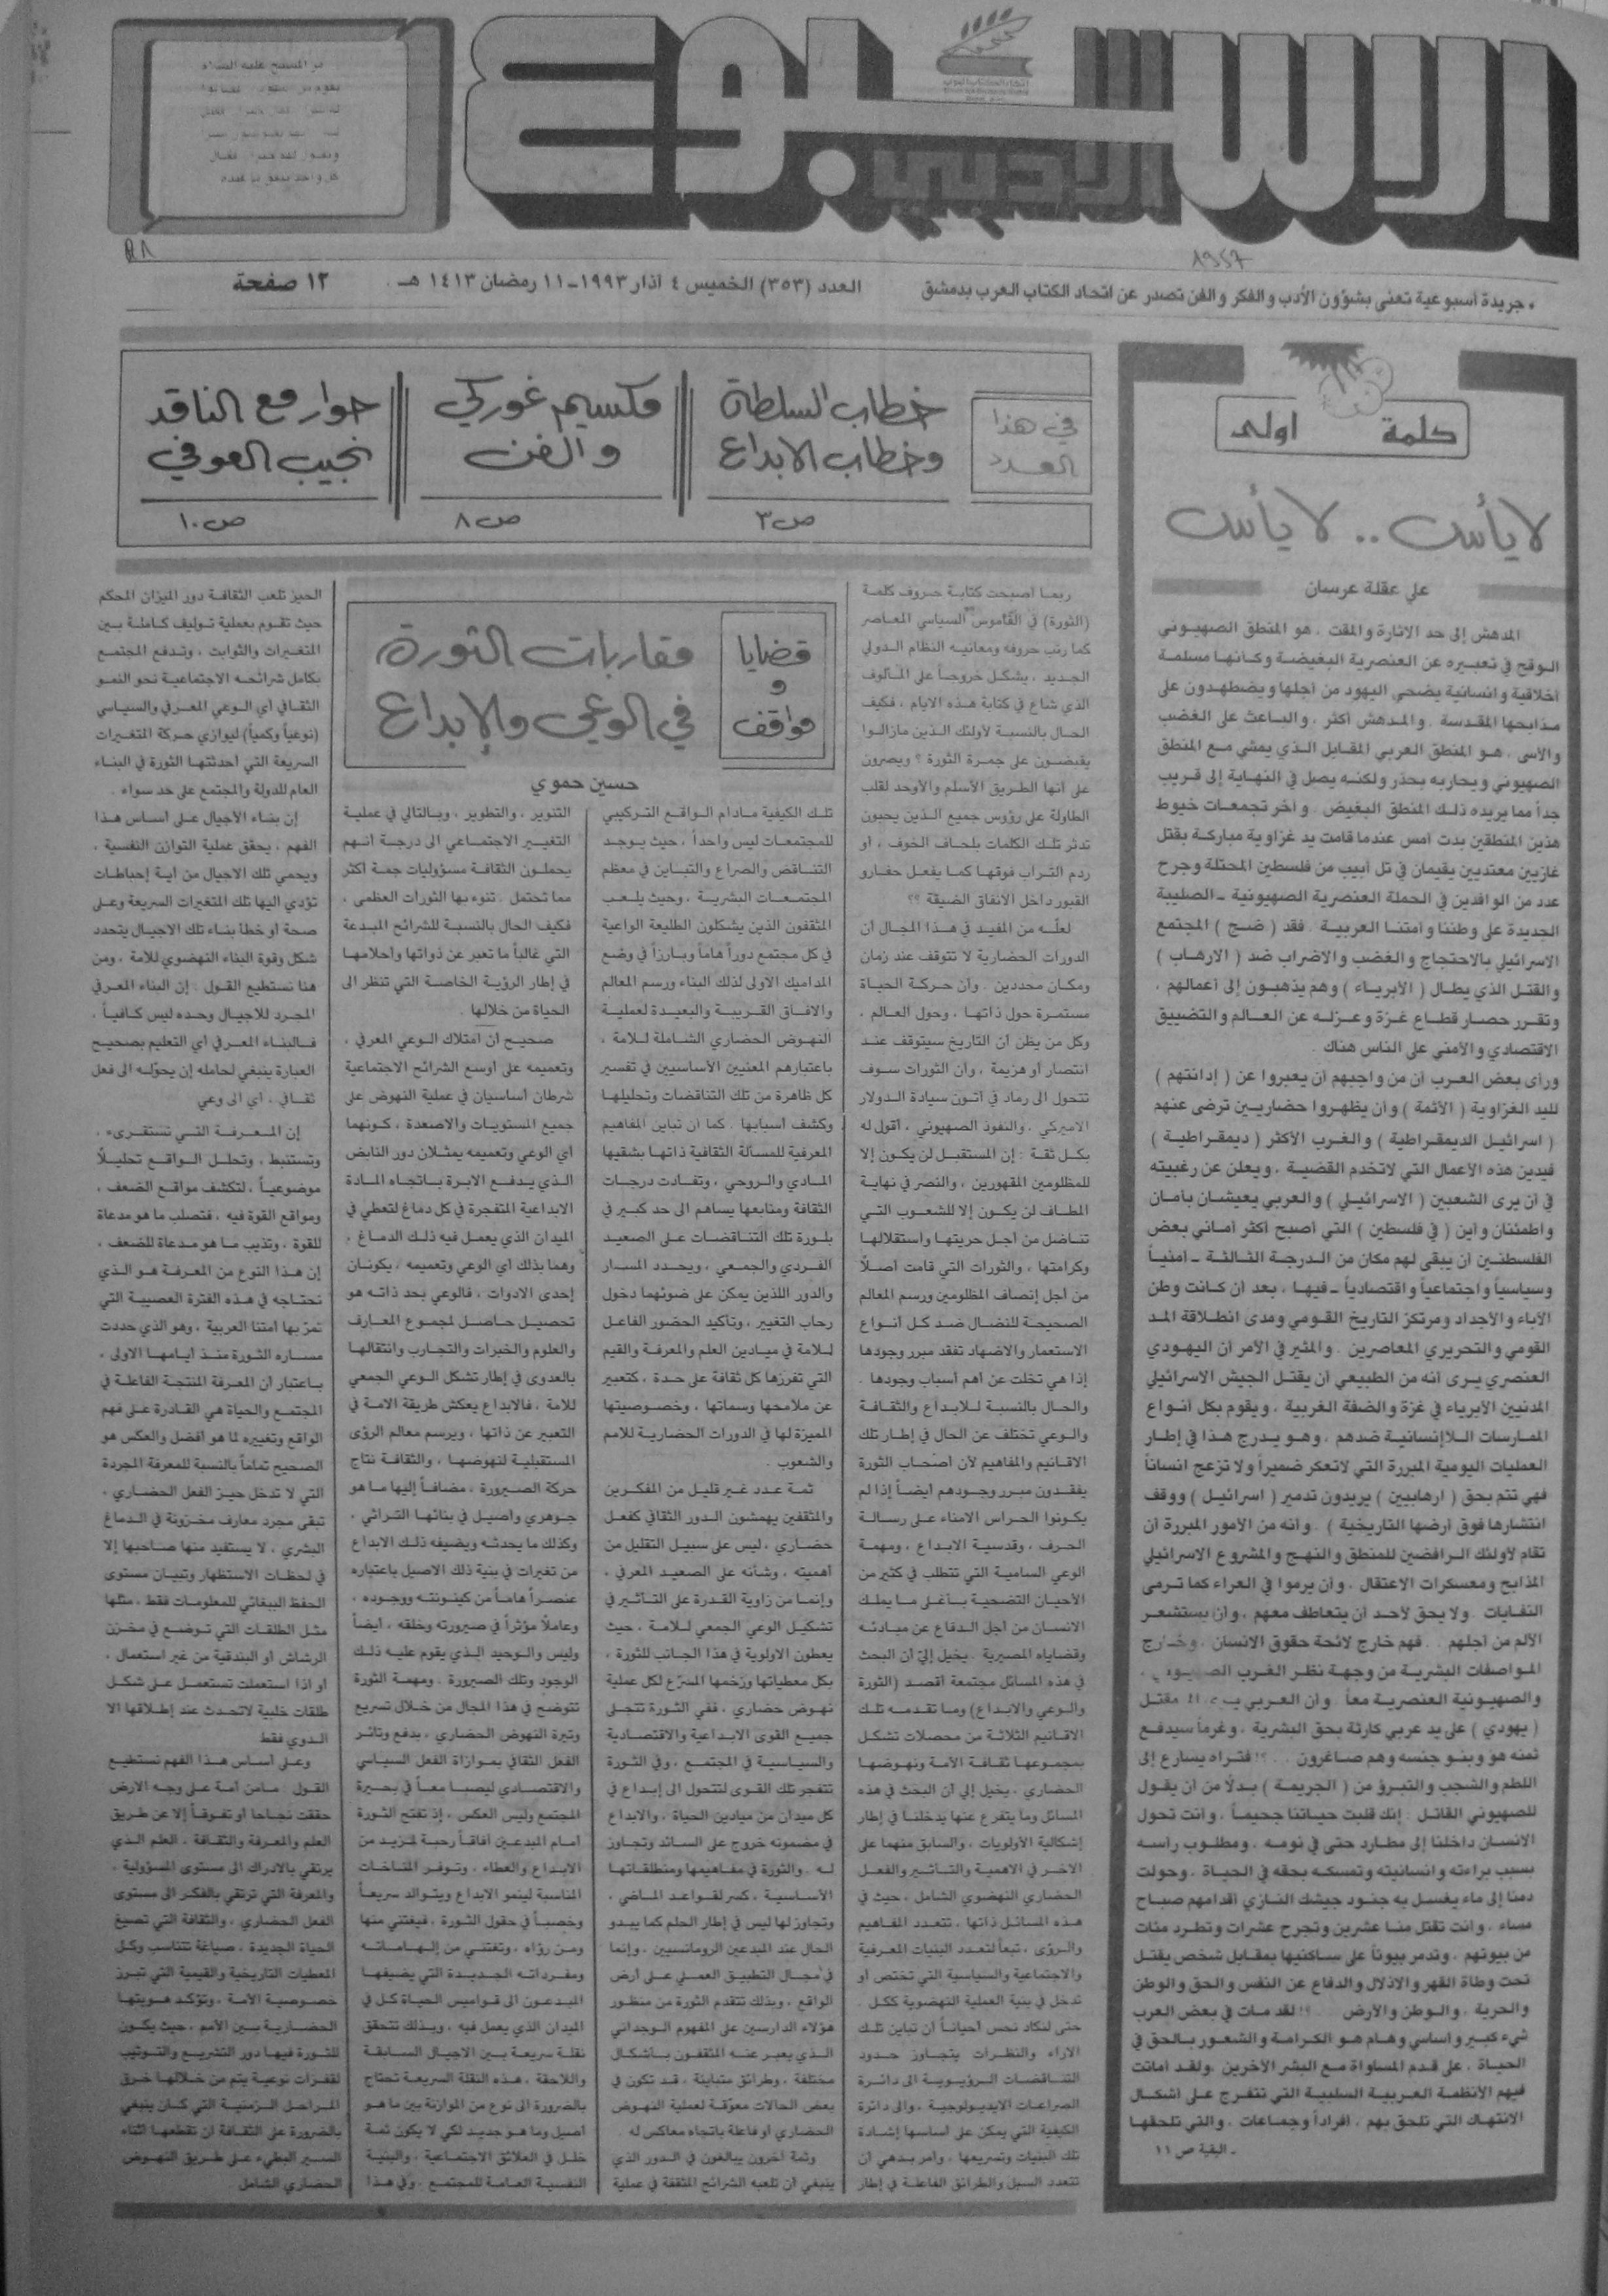 الاسبوع
الأدبي
١٢ صفحة
العدد (٣٥٣) الخميس ٤ آذار ١٩٩٣ - ١١ رمضان ١٤١٣ هـ
جريدة أسبوعية تعنى بشؤون الأدب والفكر والفن تصدر عن اتحاد الكتاب العرب بدمشق
في هذا
العدد
خطاب السلطة
وخطاب الابداع
ص ٣
مكسيم غوركي
والفن
ص ٨
حوار مع الناقد
نجيب العوفي
ص ١٠
كلمة اولى
لا يأس .. لا يأس
علي عقلة عرسان
المدهش إلى حد الاثارة والمقت ، هو المنطق الصهيوني
الوقح في تعبيره عن العنصرية البغيضة وكأنها مسلمة
أخلاقية وانسانية يضحي اليهود من أجلها ويضطهدون على
مذابحها المقدسة . والمدهش أكثر ، والباعث على الغضب
والأسى ، هو المنطق العربي المقابل الذي يمشي مع المنطق
الصهيوني ويحاربه بحذر ولكنه يصل في النهاية إلى قريب
جداً مما يريده ذلك المنطق البغيض . وآخر تجمعات خيوط
هذين المنطقين بدت أمس عندما قامت يد غزاوية مباركة بقتل
غازيين معتديين يقيمان في تل أبيب من فلسطين المحتلة وجرح
عدد من الوافدين في الحملة العنصرية الصهيونية - الصليبة
الجديدة على وطننا وأمتنا العربية . فقد ( ضج ) المجتمع
الاسرائيلي بالاحتجاج والغضب والاضراب ضد ( الارهاب )
والقتل الذي يطال ( الأبرياء ) وهم يذهبون إلى أعمالهم ،
وتقرر حصار قطاع غزة وعزله عن العالم والتضييق
الاقتصادي والأمني على الناس هناك .
ورأى بعض العرب أن من واجبهم أن يعبروا عن ( إدانتهم )
لليد الغزاوية ( الآثمة ) وأن يظهروا حضاريين ترضى عنهم
( اسرائيل الديمقراطية ) والغرب الأكثر ( ديمقراطية )
فيدين هذه الأعمال التي لا تخدم القضية ، ويعلن عن رغبيته
في أن يرى الشعبين ( الاسرائيلي ) والعربي يعيشان بأمان
واطمئنان وأين ( في فلسطين ) التي أصبح أكثر أماني بعض
الفلسطنين أن يبقى لهم مكان من الدرجة الثالثة - أمنياً
وسياسياً واجتماعياً واقتصادياً - فيها ، بعد أن كانت وطن
الآباء والأجداد ومرتكز التاريخ القومي ومدى انطلاقة المد
القومي والتحريري المعاصرين . والمثير في الأمر أن اليهودي
العنصري يرى أنه من الطبيعي أن يقتل الجيش الاسرائيلي
المدنيين الأبرياء في غزة والضفة الغربية ، ويقوم بكل أنواع
الممارسات اللاإنسانية ضدهم ، وهو يدرج هذا في إطار
العمليات اليومية المبررة التي لا تعكر ضميراً ولا تزعج انساناً
فهي تتم بحق ( ارهابيين ) يريدون تدمير ( اسرائيل ) ووقف
انتشارها فوق أرضها التاريخية ) . وأنه من الأمور المبررة أن
تقام لأولئك الرافضين للمنطق والنهج والمشروع الاسرائيلي
المذابح ومعسكرات الاعتقال ، وأن يرموا في العراء كما ترمى
النفايات . ولا يحق لأحد أن يتعاطف معهم ، وأن يستشعر
الألم من أجلهم . فهم خارج لائحة حقوق الانسان ، وخارج
المواصفات البشرية من وجهة نظر الغرب
والصهيونية العنصرية معاً . وأن العربي مقتل
( يهودي ) على يد عربي كارثة بحق البشرية ، وغرماً سيدفع
ثمنه هو وبنو جنسه وهم صاغرون . . ؟! فتراه يسارع إلى
اللطم والشجب والتبرؤ من ( الجريمة ) بدلاً من أن يقول
للصهيوني القاتل : إنك قلبت حياتنا جحيماً ، وأنت تحول
الانسان داخلنا إلى مطارد حتى في نومه ، ومطلوب رأسه
بسبب براءته وانسانيته وتمسكه بحقه في الحياة ، وحولت
دمنا إلى ماء يغسل به جنود جيشك النازي أقدامهم صباح
مساء ، وأنت تقتل منا عشرين وتجرح عشرات وتطرد مئات
من بيوتهم ، وتدمر بيوتاً على ساكنيها بمقابل شخص يقتل
تحت وطأة القهر والاذلال والدفاع عن النفس والحق والوطن
والحرية ، والوطن والأرض . . ؟! لقد مات في بعض العرب
شيء كبير وأساسي وهام هو الكرامة والشعور بالحق في
الحياة ، على قدم المساواة مع البشر الآخرين . ولقد أماتت
فيهم الأنظمة العربية السلبية التي تتفرج على أشكال
الانتهاك التي تلحق بهم ، أفراداً وجماعات ، والتي تلحقها
- البقية ص ١١
قضايا
و
مواقف
مقاربات الثورة
في الوعي والإبداع
حسين حموي
ربما أصبحت كتابة حروف كلمة
(الثورة) في القاموس السياسي المعاصر
كما رتب حروفه ومعانيه النظام الدولي
الجديد ، يشكل خروجاً على المألوف
الذي شاع في كتابة هذه الأيام ، فكيف
الحال بالنسبة لأولئك الذين مازالوا
يقبضون على جمرة الثورة ؟ ويصرون
على أنها الطريق الأسلم والأوحد لقلب
الطاولة على رؤوس جميع الذين يحبون
تدثر تلك الكلمات بلحاف الخوف ، أو
ردم التراب فوقها كما يفعل حفارو
القبور داخل الأنفاق الضيقة ؟؟
لعلّه من المفيد في هذا المجال أن
الدورات الحضارية لا تتوقف عند زمان
ومكان محددين . وأن حركة الحياة
مستمرة حول ذاتها ، وحول العالم ،
وكل من يظن أن التاريخ سيتوقف عند
انتصار أو هزيمة ، وأن الثورات سوف
تتحول الى رماد في أتون سيادة الدولار
الاميركي ، والنفوذ الصهيوني ، أقول له
بكل ثقة : إن المستقبل لن يكون إلا
للمظلومين المقهورين ، والنصر في نهاية
المطاف لن يكون إلا للشعوب التي
تناضل من أجل حريتها واستقلالها
وكرامتها ، والثورات التي قامت أصلاً
من أجل إنصاف المظلومين ورسم المعالم
الصحيحة للنضال ضد كل أنواع
الاستعمار والاضهاد تفقد مبرر وجودها
إذا هي تخلت عن أهم أسباب وجودها .
والحال بالنسبة للابداع والثقافة
والوعي تختلف عن الحال في إطار تلك
الاقانيم والمفاهيم لأن أصحاب الثورة
يفقدون مبرر وجودهم أيضاً إذا لم
يكونوا الحراس الامناء على رسالة
الحرف ، وقدسية الابداع ، ومهمة
الوعي السامية التي تتطلب في كثير من
الأحيان التضحية بأغلى ما يملك
الانسان من أجل الدفاع عن مبادئه
وقضاياه المصيرية . يخيل إليّ أن البحث
في هذه المسائل مجتمعة أقصد (الثورة
والوعي والابداع) وما تقدمه تلك
الاقانيم الثلاثة من محصلات تشكل
بمجموعها ثقافة الأمة ونهوضها
الحضاري ، يخيل إلي أن البحث في هذه
المسائل وما يتفرع عنها يدخلنا في إطار
إشكالية الأولويات ، والسابق منهما على
الآخر في الاهمية والتأثير والفعل
الحضاري النهضوي الشامل ، حيث في
هذه المسائل ذاتها ، تتعدد المفاهيم
والرؤى ، تبعاً لتعدد البنيات المعرفية
والاجتماعية والسياسية التي تختص أو
تدخل في بنية العملية النهضوية ككل .
حتى لنكاد نحس أحياناً أن تباين تلك
الآراء والنظرات يتجاوز حدود
التناقضات الرؤيوية الى دائرة
الصراعات الايديولوجية ، والى دائرة
الكيفية التي يمكن على أساسها إشادة
تلك البنيات وتسريعها . وأمر بدهي أن
تتعدد السبل والطرائق الفاعلة في إطار
تلك الكيفية مادام الواقع التركيبي
للمجتمعات ليس واحداً ، حيث يوجد
التناقض والصراع والتباين في معظم
المجتمعات البشرية ، وحيث يلعب
المثقفون الذين يشكلون الطليعة الواعية
في كل مجتمع دوراً هاماً وبارزاً في وضع
المداميك الأولى لذلك البناء ورسم المعالم
والآفاق القريبة والبعيدة لعملية
النهوض الحضاري الشاملة للامة ،
باعتبارهم المعنيين الأساسيين في تفسير
كل ظاهرة من تلك التناقضات وتحليلها
وكشف أسبابها . كما أن تباين المفاهيم
المعرفية للمسألة الثقافية ذاتها بشقيها
المادي والروحي ، وتفاوت درجات
الثقافة ومنابعها يساهم الى حد كبير في
بلورة تلك التناقضات على الصعيد
الفردي والجمعي ، ويحدد المسار
والدور اللذين يمكن على ضوئهما دخول
رحاب التغيير ، وتأكيد الحضور الفاعل
للامة في ميادين العلم والمعرفة والقيم
التي تفرزها كل ثقافة على حدة ، كتعبير
عن ملامحها وسماتها ، وخصوصيتها
المميزة لها في الدورات الحضارية للأمم
والشعوب .
ثمة عدد غير قليل من المفكرين
والمثقفين يهمشون الدور الثقافي كفعل
حضاري ، ليس على سبيل التقليل من
أهميته ، وشأنه على الصعيد المعرفي ،
وإنما من زاوية القدرة على التأثير في
تشكيل الوعي الجمعي للامة ، حيث
يعطون الاولوية في هذا الجانب للثورة ،
بكل معطياتها وزخمها المسرّع لكل عملية
نهوض حضاري ، ففي الثورة تتجلى
جميع القوى الابداعية والاقتصادية
والسياسية في المجتمع ، وفي الثورة
تتفجر تلك القوى لتتحول الى إبداع في
كل ميدان من ميادين الحياة ، والابداع
في مضمونه خروج على السائد وتجاوز
له . والثورة في مفاهيمها ومنطلقاتها
الأساسية ، كسر لقواعد الماضي ،
وتجاوز لها ليس في إطار الحلم كما يبدو
الحال عند المبدعين الرومانسيين ، وإنما
في مجال التطبيق العملي على أرض
الواقع ، وبذلك تتقدم الثورة من منظور
هؤلاء الدارسين على المفهوم الوجداني
الذي يعبر عنه المثقفون بأشكال
مختلفة ، وطرائق متباينة ، قد تكون في
بعض الحالات معوّقة لعملية النهوض
الحضاري أو فاعلة باتجاه معاكس له .
وثمة آخرون يبالغون في الدور الذي
ينبغي أن تلعبه الشرائح المثقفة في عملية
التنوير ، والتطوير ، وبالتالي في عملية
التغيير الاجتماعي الى درجة أنهم
يحملون الثقافة مسؤوليات جمة أكثر
مما تحتمل . تنوء بها الثورات العظمى ،
فكيف الحال بالنسبة للشرائح المبدعة
التي غالباً ما تعبر عن ذواتها وأحلامها
في إطار الرؤية الخاصة التي تنظر الى
الحياة من خلالها .
صحيح أن امتلاك الوعي المعرفي ،
وتعميمه على أوسع الشرائح الاجتماعية
شرطان أساسيان في عملية النهوض على
جميع المستويات والاصعدة ، كونهما
أي الوعي وتعميمه يمثلان دور النابض
الذي يدفع الابرة باتجاه المادة
الابداعية المتفجرة في كل دماغ لتعطي في
الميدان الذي يعمل فيه ذلك الدماغ ،
وهما بذلك أي الوعي وتعميمه ، يكونان
إحدى الادوات ، فالوعي بحد ذاته هو
تحصيل حاصل لمجموع المعارف
والعلوم والخبرات والتجارب وانتقالها
بالعدوى في إطار تشكل الوعي الجمعي
للامة ، فالابداع يعكش طريقة الامة في
التعبير عن ذاتها ، ويرسم معالم الرؤى
المستقبلية لنهوضها ، والثقافة نتاج
حركة الصيرورة ، مضافاً إليها ما هو
جوهري وأصيل في بنائها التراثي ،
وكذلك ما يحدثه ويضيفه ذلك الابداع
من تغيرات في بنية ذلك الاصيل باعتباره
عنصراً هاماً من كينونته ووجوده ،
وعاملاً مؤثراً في صيرورته وخلقه ، أيضاً
وليس والوحيد الذي يقوم عليه ذلك
الوجود وتلك الصيرورة . ومهمة الثورة
تتوضح في هذا المجال من خلال تسريع
وتيرة النهوض الحضاري ، بدفع وتأثر
الفعل الثقافي بموازاة الفعل السياسي
والاقتصادي ليصبا معاً في بحيرة
المجتمع وليس العكس ، إذ تفتح الثورة
أمام المبدعين آفاقاً رحبة لمزيد من
الابداع والعطاء ، وتوفر المناخات
المناسبة لينمو الابداع ويتوالد سريعاً
وخصباً في حقول الثورة ، فيغتني منها
ومن رؤاه ، وتغتني من إلهاماته
ومفرداته الجديدة التي يضيفها
المبدعون الى قواميس الحياة كل في
الميدان الذي يعمل فيه ، وبذلك تتحقق
نقلة سريعة بين الاجيال السابقة
واللاحقة ، هذه النقلة السريعة تحتاج
بالضرورة الى نوع من الموازنة بين ما هو
أصيل وما هو جديد لكي لا يكون ثمة
خلل في العلائق الاجتماعية ، والبنية
النفسية العامة للمجتمع . وفي هذا
الحيز تلعب الثقافة دور الميزان المحكم
حيث تقوم بعملية توليف كاملة بين
المتغيرات والثوابت ، وتدفع المجتمع
بكامل شرائحه الاجتماعية نحو النمو
الثقافي أي الوعي المعرفي والسياسي
(نوعياً وكمياً) ليوازي حركة المتغيرات
السريعة التي أحدثتها الثورة في البناء
العام للدولة والمجتمع على حد سواء .
إن بناء الأجيال على أساس هذا
الفهم ، يحقق عملية التوازن النفسية ،
ويحمي تلك الاجيال من أية إحباطات
تؤدي اليها تلك المتغيرات السريعة وعلى
صحة أو خطأ بناء تلك الاجيال يتحدد
شكل وقوة البناء النهضوي للأمة ، ومن
هنا نستطيع القول : إن البناء المعرفي
المجرد للأجيال وحده ليس كافياً ،
فالبناء المعرفي أي التعليم بصحيح
العبارة ينبغي لحامله إن يحوّله الى فعل
ثقافي ، أي الى وعي
إن المعرفة التي تستقرىء ،
وتستنبط ، وتحلل الواقع تحليلاً
موضوعياً ، لتكشف مواقع الضعف ،
ومواقع القوة فيه ، فتصلب ما هو مدعاة
للقوة ، وتذيب ما هو مدعاة للضعف ،
إن هذا النوع من المعرفة هو الذي
نحتاجه في هذه الفترة العصيبة التي
تمرّ بها أمتنا العربية ، وهو الذي حددت
مساره الثورة منذ أيامها الاولى ،
باعتبار أن المعرفة المنتجة الفاعلة في
المجتمع والحياة هي القادرة على فهم
الواقع وتغييره لما هو أفضل والعكس هو
الصحيح تماماً بالنسبة للمعرفة المجردة
التي لا تدخل حيز الفعل الحضاري ،
تبقى مجرد معارف مخزونة في الدماغ
البشري ، لا يستفيد منها صاحبها إلا
في لحظات الاستظهار وتبيان مستوى
الحفظ الببغائي للمعلومات فقط ، مثلها
مثل الطلقات التي توضع في مخزن
الرشاش أو البندقية من غير استعمال ،
أو اذا استعملت تستعمل على شكل
طلقات خلبية لاتحدث عند إطلاقها الا
الدوي فقط
وعلى أساس هذا الفهم نستطيع
القول : مامن أمة على وجه الأرض
حققت نجاحا أو تفوقاً إلا عن طريق
العلم والمعرفة والثقافة ، العلم الذي
يرتقي بالادراك الى مستوى المسؤولية ،
والمعرفة التي ترتقي بالفكر الى مستوى
الفعل الحضاري ، والثقافة التي تصيغ
الحياة الجديدة ، صياغة تتناسب وكل
المعطيات التاريخية والقيمية التي تبرز
خصوصية الأمة ، وتؤكد هويتها
الحضارية بين الأمم ، حيث يكون
للثورة فيها دور التشريع والتوثيب
لقفزات نوعية يتم من خلالها خرق
المراحل الزمنية التي كان ينبغي
بالضرورة على الثقافة أن تقطعها أثناء
السير البطيء على طريق النهوض
الحضاري الشامل .